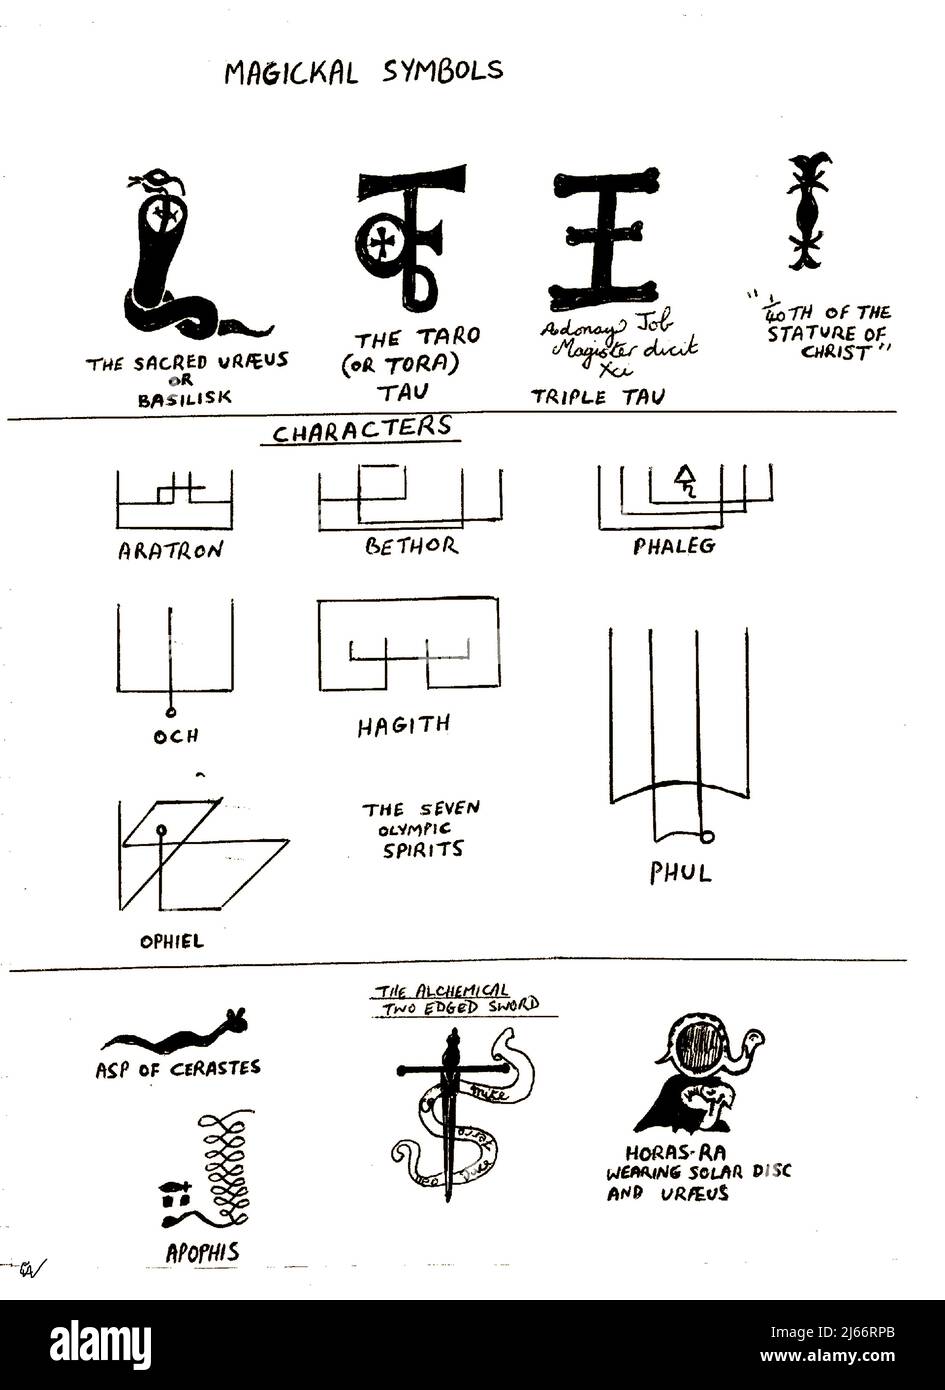 MAGICKAL SYMBOLS
THE SACRED URÆUS
OR
BASILISK
THE TARO
(OR TORA)
TAU
Adonay Job
Magister dicit
Xci
TRIPLE TAU
"1/40TH OF THE
STATURE OF
CHRIST"
CHARACTERS
ARATRON
BETHOR
PHALEG
OCH
HAGITH
PHUL
OPHIEL
THE SEVEN
OLYMPIC
SPIRITS
THE ALCHEMICAL
TWO EDGED SWORD
ASP OF CERASTES
APOPHIS
HORAS-RA
WEARING SOLAR DISC
AND URÆUS
alamy
Image ID: 2J66RPB
www.alamy.com